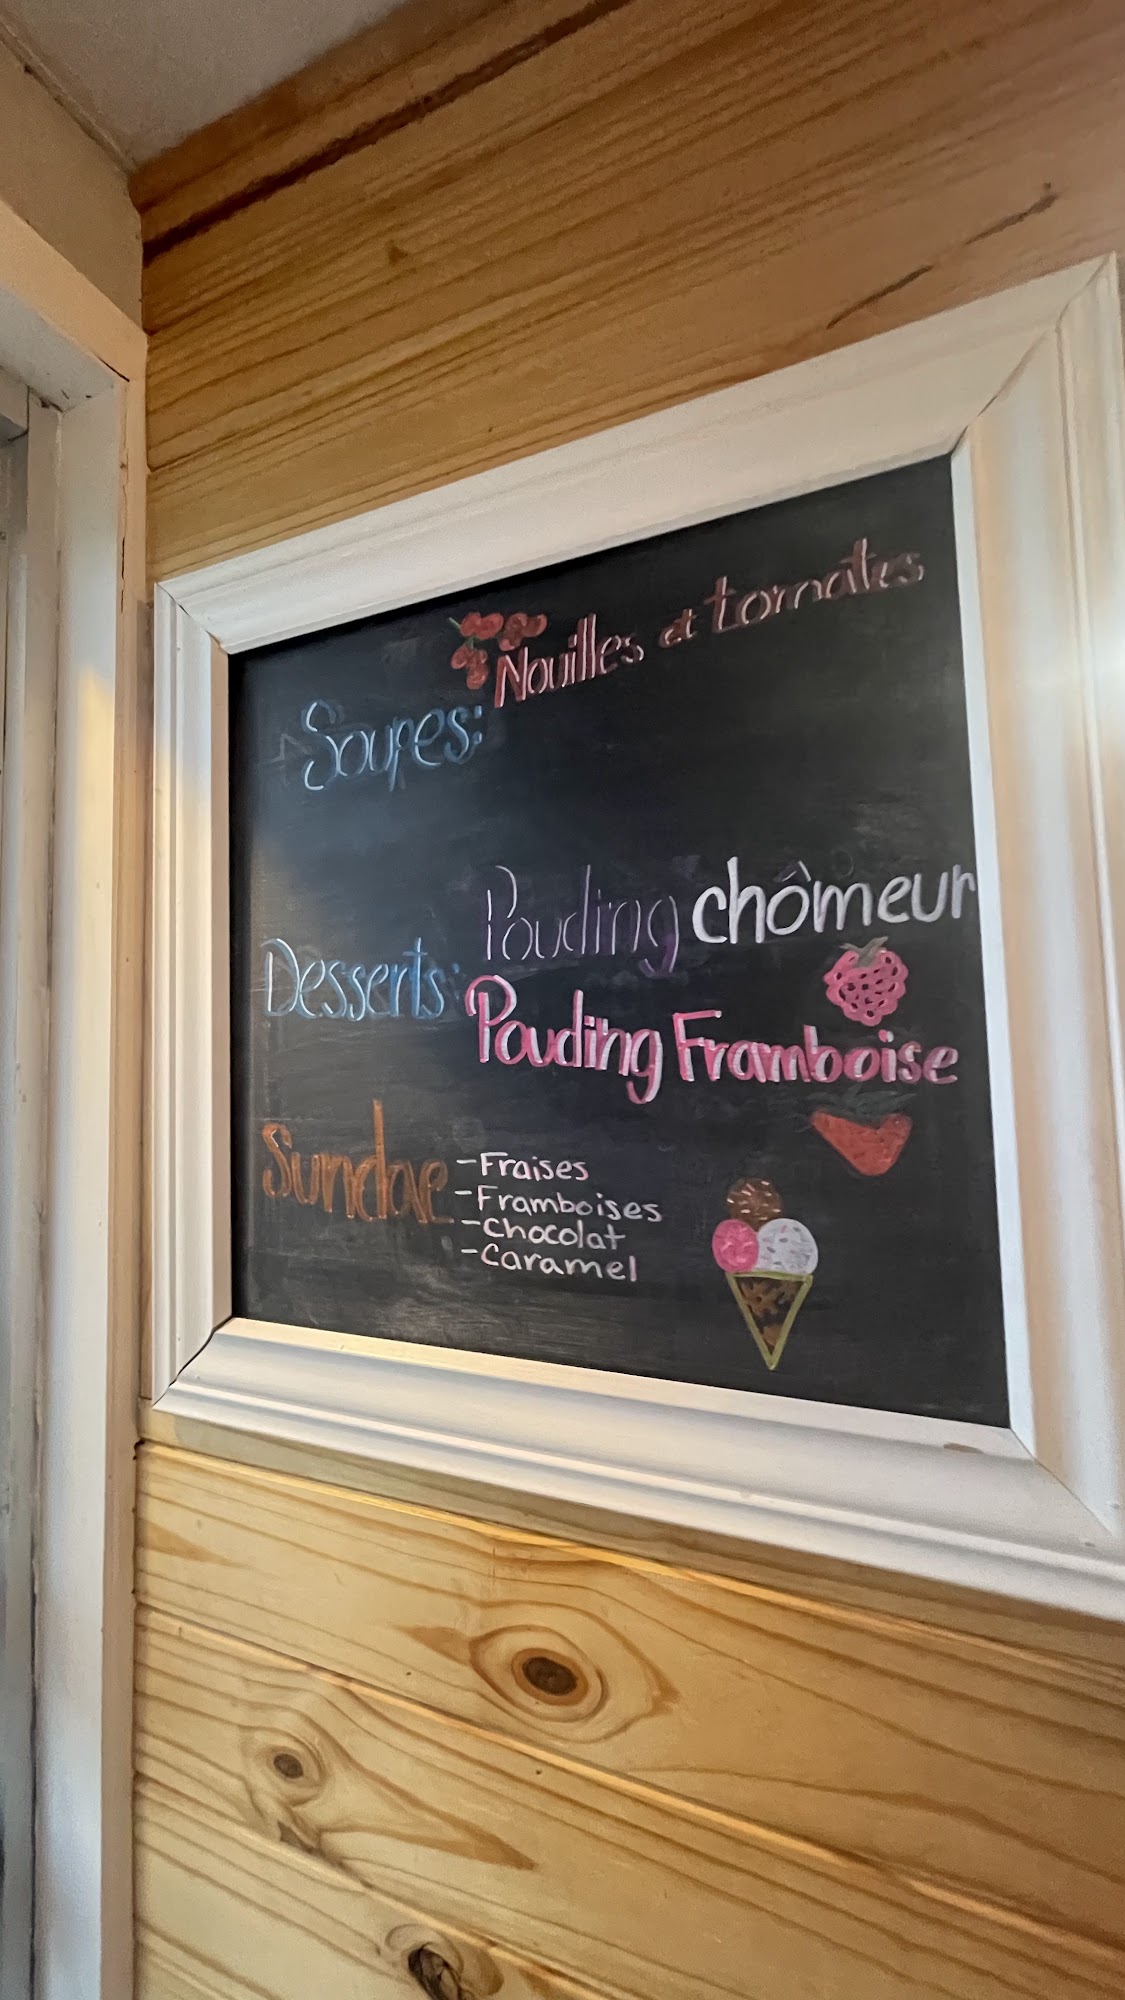 Nouilles et tomates
Soupes:
Pouding chômeur
Desserts:
Pouding Framboise
Sundae
-Fraises
-Framboises
-Chocolat
-Caramel